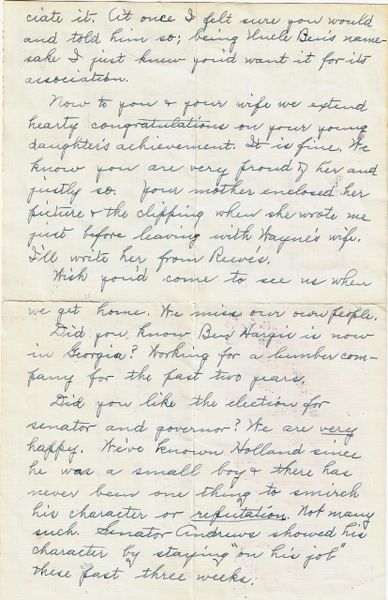 ciate it. At once I felt sure you would
and told him so; being Uncle Ben's name-
sake I just knew you'd want it for its
association.
Now to you & your wife we extend
hearty congratulations on your young
daughter's achievement. It is fine. We
know you are very proud of her and
justly so. Your mother enclosed her
picture & the clipping when she wrote me
just before leaving with Wayne's wife.
I'll write her from Reeve's.
Wish you'd come to see us when
we get home. We miss our own people.
Did you know Ben is now
in Georgia? Working for a lumber com-
pany for the past two years.
Did you like the election for
senator and governor? We are very
happy. We've known Holland since
he was a small boy & there has
never been one thing to smirch
his character or reputation. Not many
such. Senator Andrews showed his
character by staying on his job"
these past three weeks.